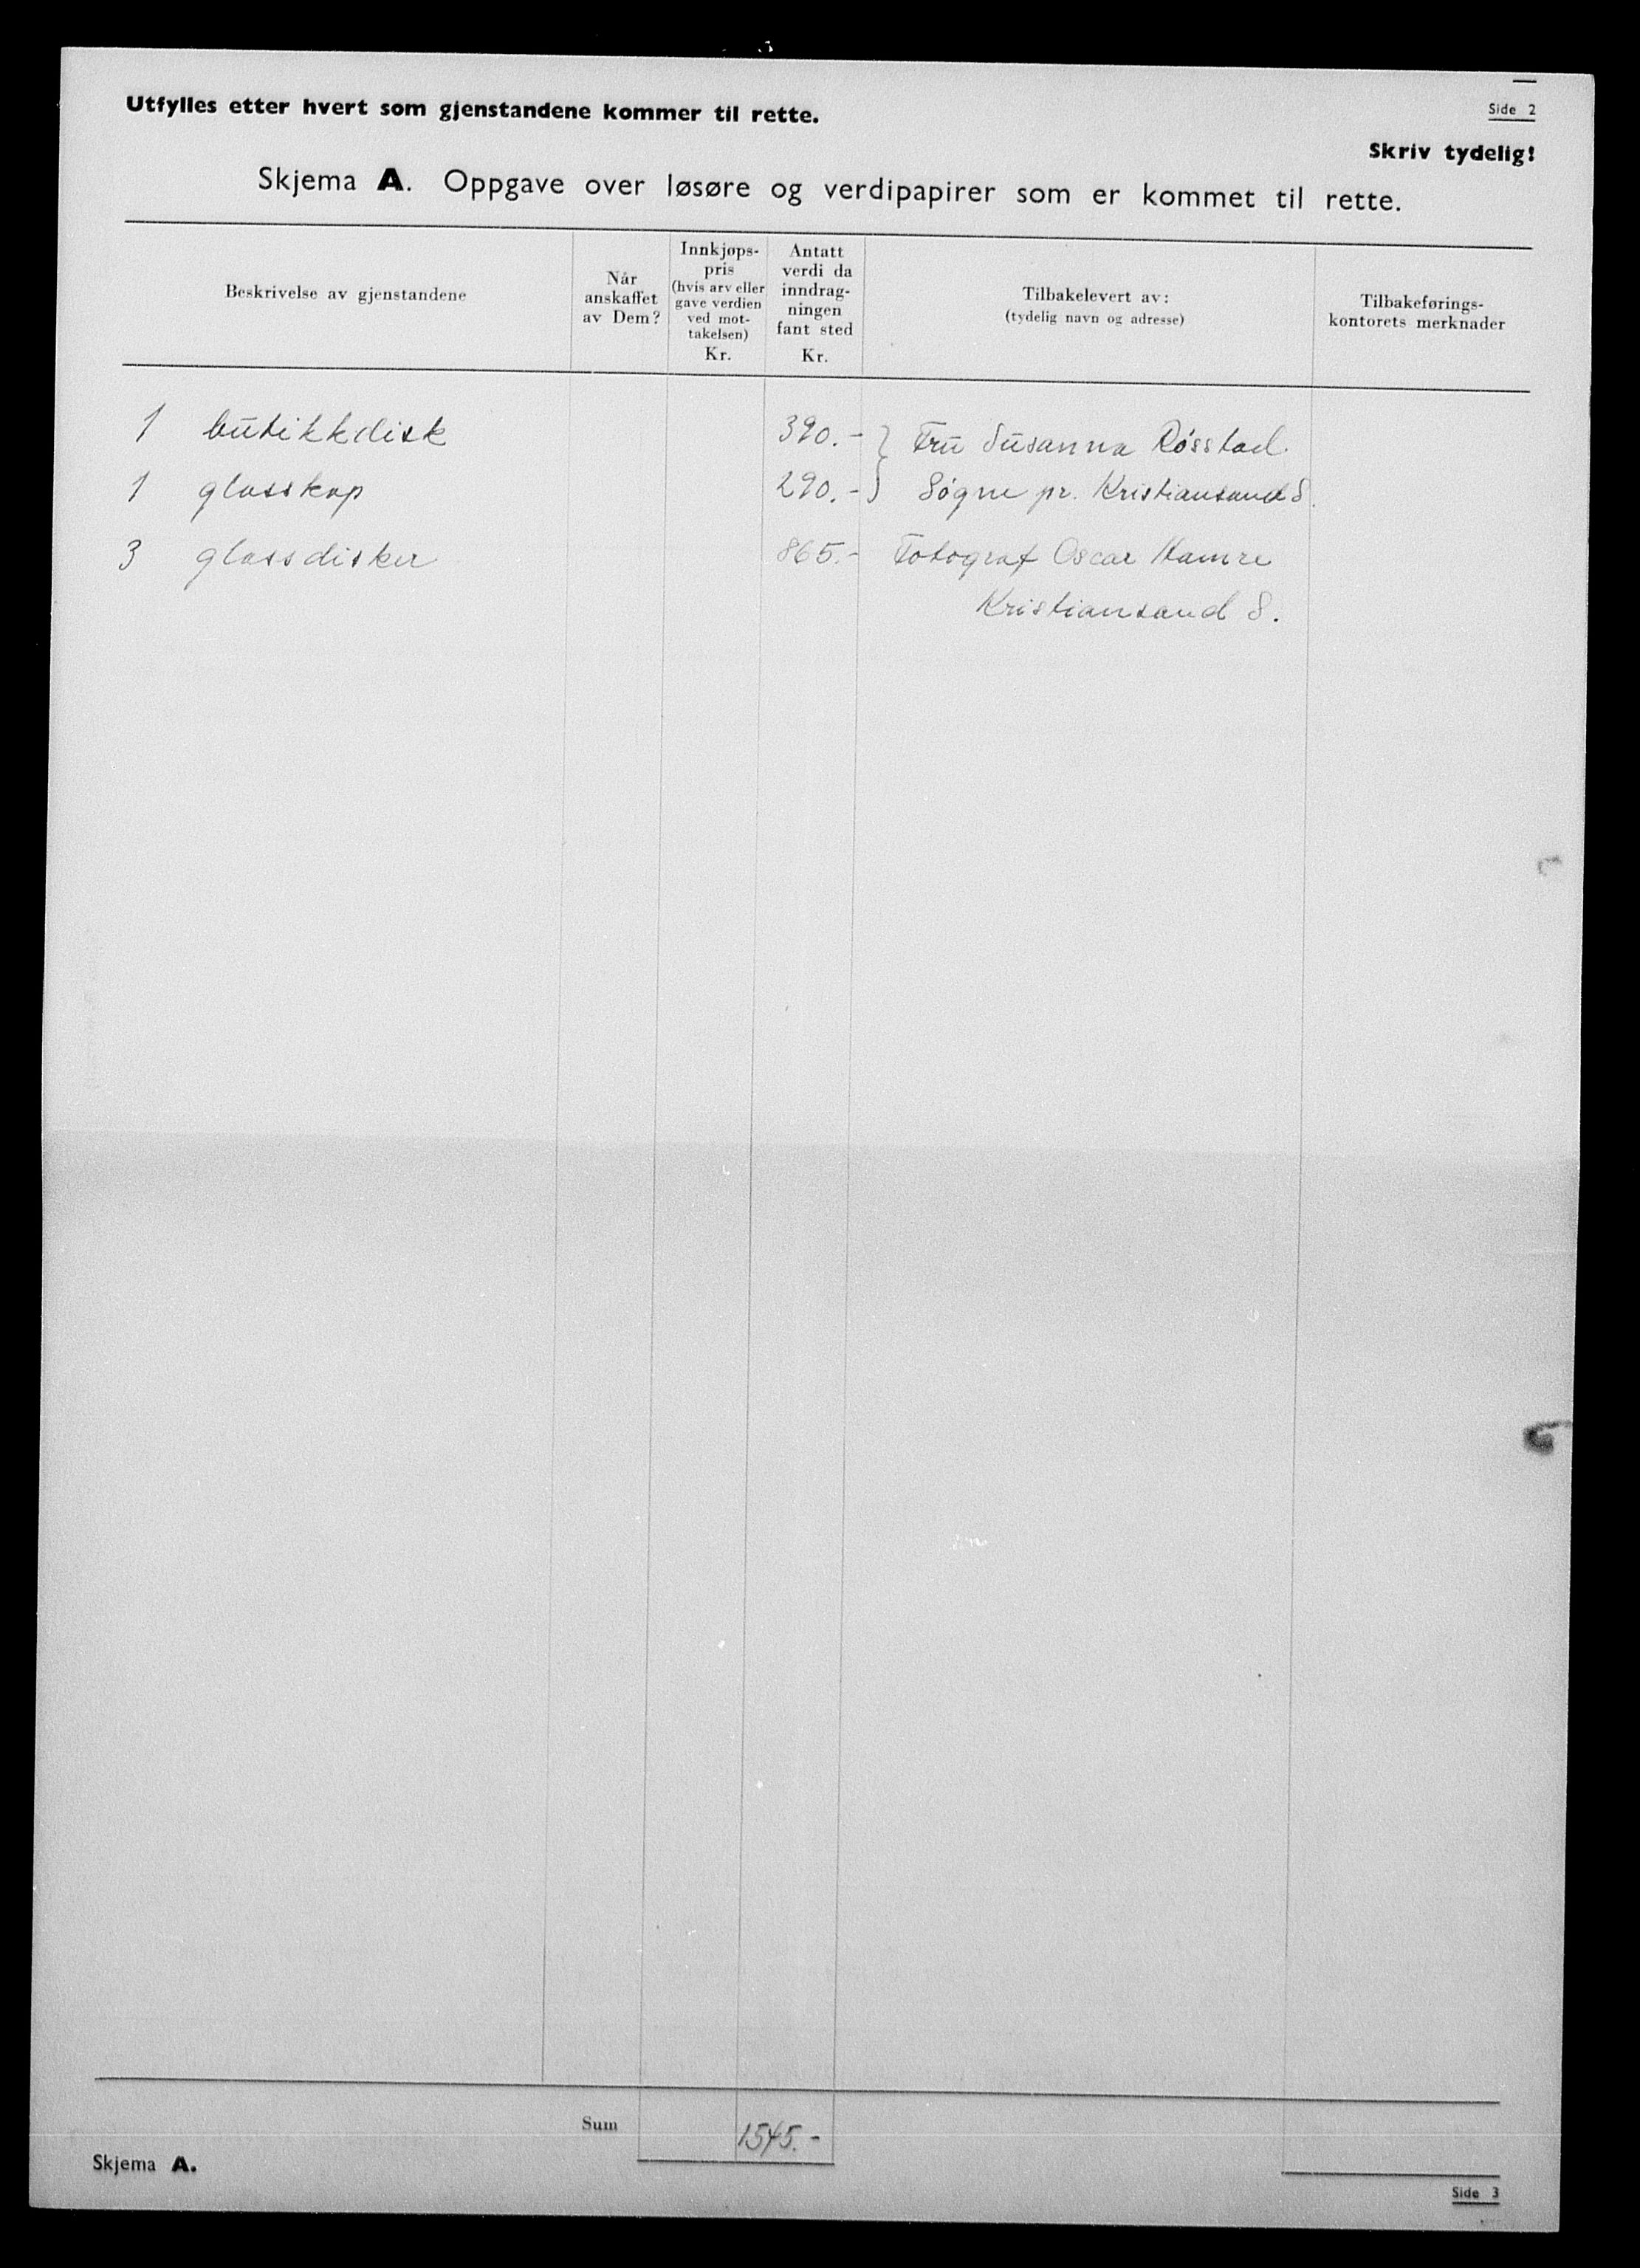 Utfylles etter hvert som gjenstandene kommer til rette.
Side 2
Skriv tydelig!
Skjema A. Oppgave over løsøre og verdipapirer som er kommet til rette.
Beskrivelse av gjenstandene
Når
anskaffet
av Dem?
Innkjøps-
pris
(hvis arv eller
gave verdien
ved mot-
takelsen)
Kr.
Antatt
verdi da
inndrag-
ningen
fant sted
Kr.
Tilbakelevert av:
(tydelig navn og adresse)
Tilbakeførings-
kontorets merknader
1 butikkdisk 390.- } Fru Susanna Røsstad.
1 glasskap 290.- } Søgne pr. Kristiansand S.
3 glassdisker 865.- Fotograf Oscar Hamre
Kristiansand S.
Sum 1545.-
Skjema A.
Side 3